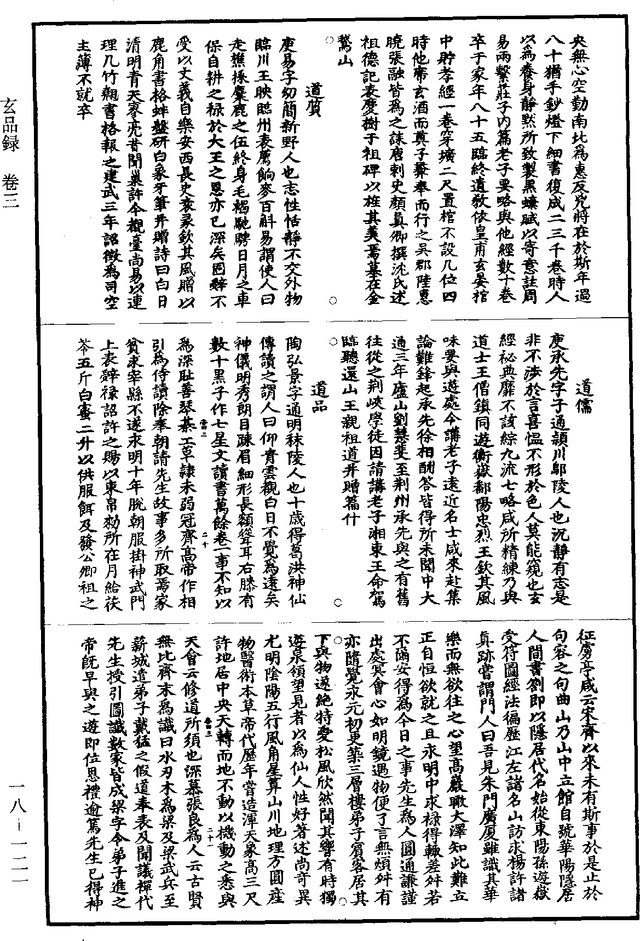 玄品録 卷三
央無心空勤南北為惠反兇將在於斯年過
八十猶手鈔燈下細書復成二三千卷時人
以為養身靜默所致製黑蠂賦以寄意註周
易兩繫莊子內篇老子要略與他經數十卷
卒于家年八十五臨終遺教依皇甫玄晏棺
中貯孝經一卷穿壙二尺置棺不設几位四
時他席玄酒而奠子彝奉而行之吳郡陸惠
曉張融皆為之誄唐刺史顏真卿撰沈氏述
祖德記表慶樹于祖碑以旌其美焉墓在金
鵞山
道質
庾易字幼簡新野人也志性恬靜不交外物
臨川王映臨州表薦餉麥百斛易謂使人曰
走樵採麋鹿之伍終身毛褐馳騁日月之車
保自耕之祿於大王之恩亦已深矣固辭不
受以文義自樂安西長史袁彖欽其風贈以
鹿角書格蚌盤研白象牙筆并贈詩曰白日
清明青天寥亮昔聞巢許今覯臺尚易以連
理几竹翹書格報之建武三年詔徵為司空
主薄不就卒
道儒
庾承先字子通潁川鄢陵人也沉靜有志是
非不涉於言喜慍不形於色人莫能窺也玄
經祕典靡不該綜九流七略咸所精練乃與
道士王僧鎮同遊衡嶽鄱陽忠烈王欽其風
味要與遊處令講老子遠近名士咸來赴集
論難鋒起承先徐相酬答皆得所未聞中大
通三年廬山劉慧斐至荆州承先與之有舊
往從之荆峽學徒因請講老子湘東王命駕
臨聽還山王親祖道并贈篇什
道品
陶弘景字通明秣陵人也十歲得葛洪神仙
傳讀之謂人曰仰青雲觀白日不覺為遠矣
神儀明秀朗目疎眉細形長額聳耳右膝有
數十黑子作七星文讀書萬餘卷一事不知以
為深恥善琴碁工草隷未弱冠齊高帝作相
引為侍讀除奉朝請先生故事多所取焉家
貧求宰縣不遂永明十年脫朝服掛神武門
上表辭祿詔許之賜以束帛勑所在月給茯
苓五斤白蜜二升以供服餌及發公卿祖之
征虜亭咸云宋齊以來未有斯事於是止於
句容之句曲山乃山中立館自號華陽隱居
人間書劄即以隱居代名始從東陽孫遊嶽
受符圖經法徧歷江左諸名山訪求楊許諸
真跡嘗謂門人曰吾見朱門廣厦雖識其華
樂而無欲往之心望高巖瞰大澤知此難立
正自恒欲就之且永明中求祿得輙差舛若
不爾安得為今日之事先生為人圓通謙謹
出處冥會心如明鏡遇物便了言無煩舛有
亦隨覺永元初更築三層樓弟子賓客居其
下與物遂絶特愛松風欣然聞其響有時獨
遊泉領望見者以為仙人性好著述尚奇異
尤明陰陽五行風角星算山川地理方圓產
物醫術本草帝代歷年嘗造渾天象高三尺
許地居中央天轉而地不動以機動之悉與
天會云修道所須也深慕張良為人云古賢
無比齊末為識曰水刃木為梁及梁武兵至
新城遣弟子戴猛之假道奉表及聞議禪代
先生授引圖讖數家皆成梁字令弟子進之
帝既早與之遊即位恩禮逾篤先生已得神
一八—一二一